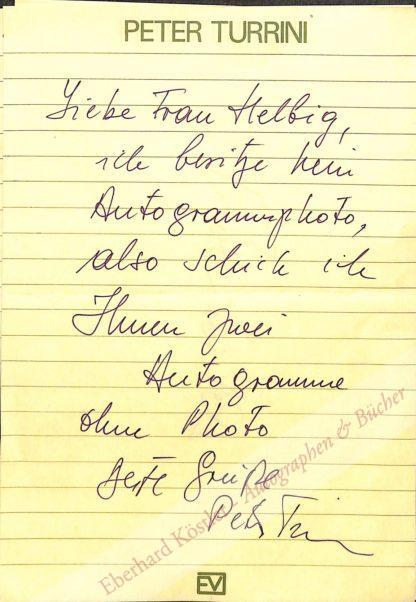 PETER TURRINI
Liebe Frau Helbig,
ich besitze kein
Autogrammphoto,
also schick ich
Ihnen zwei
Autogramme
ohne Photo
Beste Grüße
Peter Turrini
Eberhard Köstler - Autographen & Bücher
EV